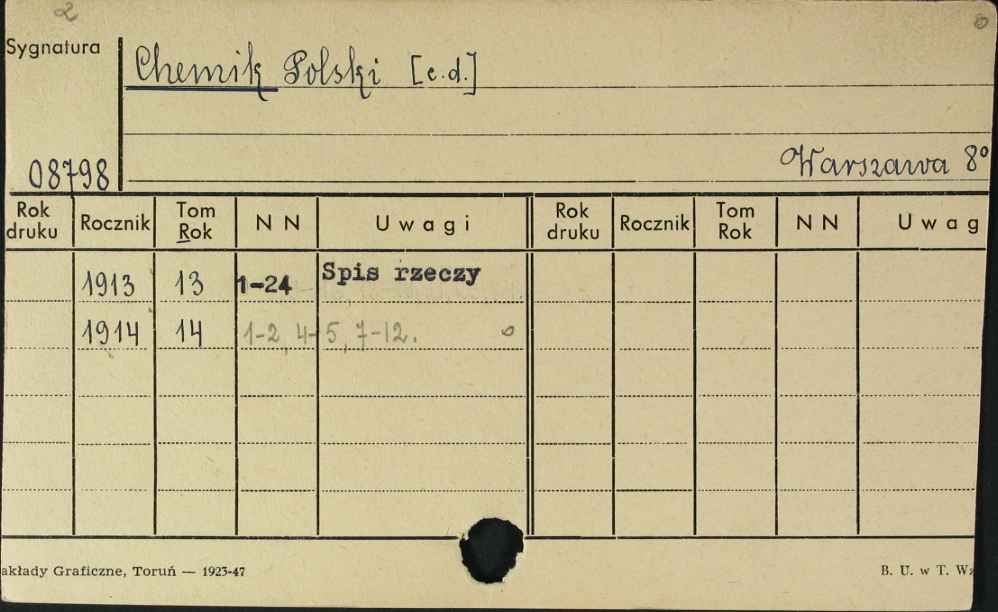 2
Sygnatura
Chemik Polski [c.d.]
08798
Warszawa 8°
Rok druku Rocznik Tom Rok N N Uwagi Rok druku Rocznik Tom Rok N N Uwag
1913 13 1-24 Spis rzeczy
1914 14 1-2, 4-5, 7-12.
akłady Graficzne, Toruń — 1923-47 B. U. w T.